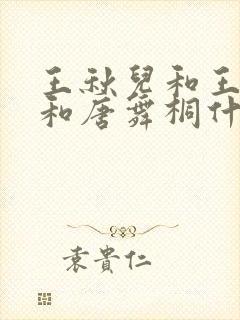 王秋兒和王
和唐舞桐什
袁貴仁